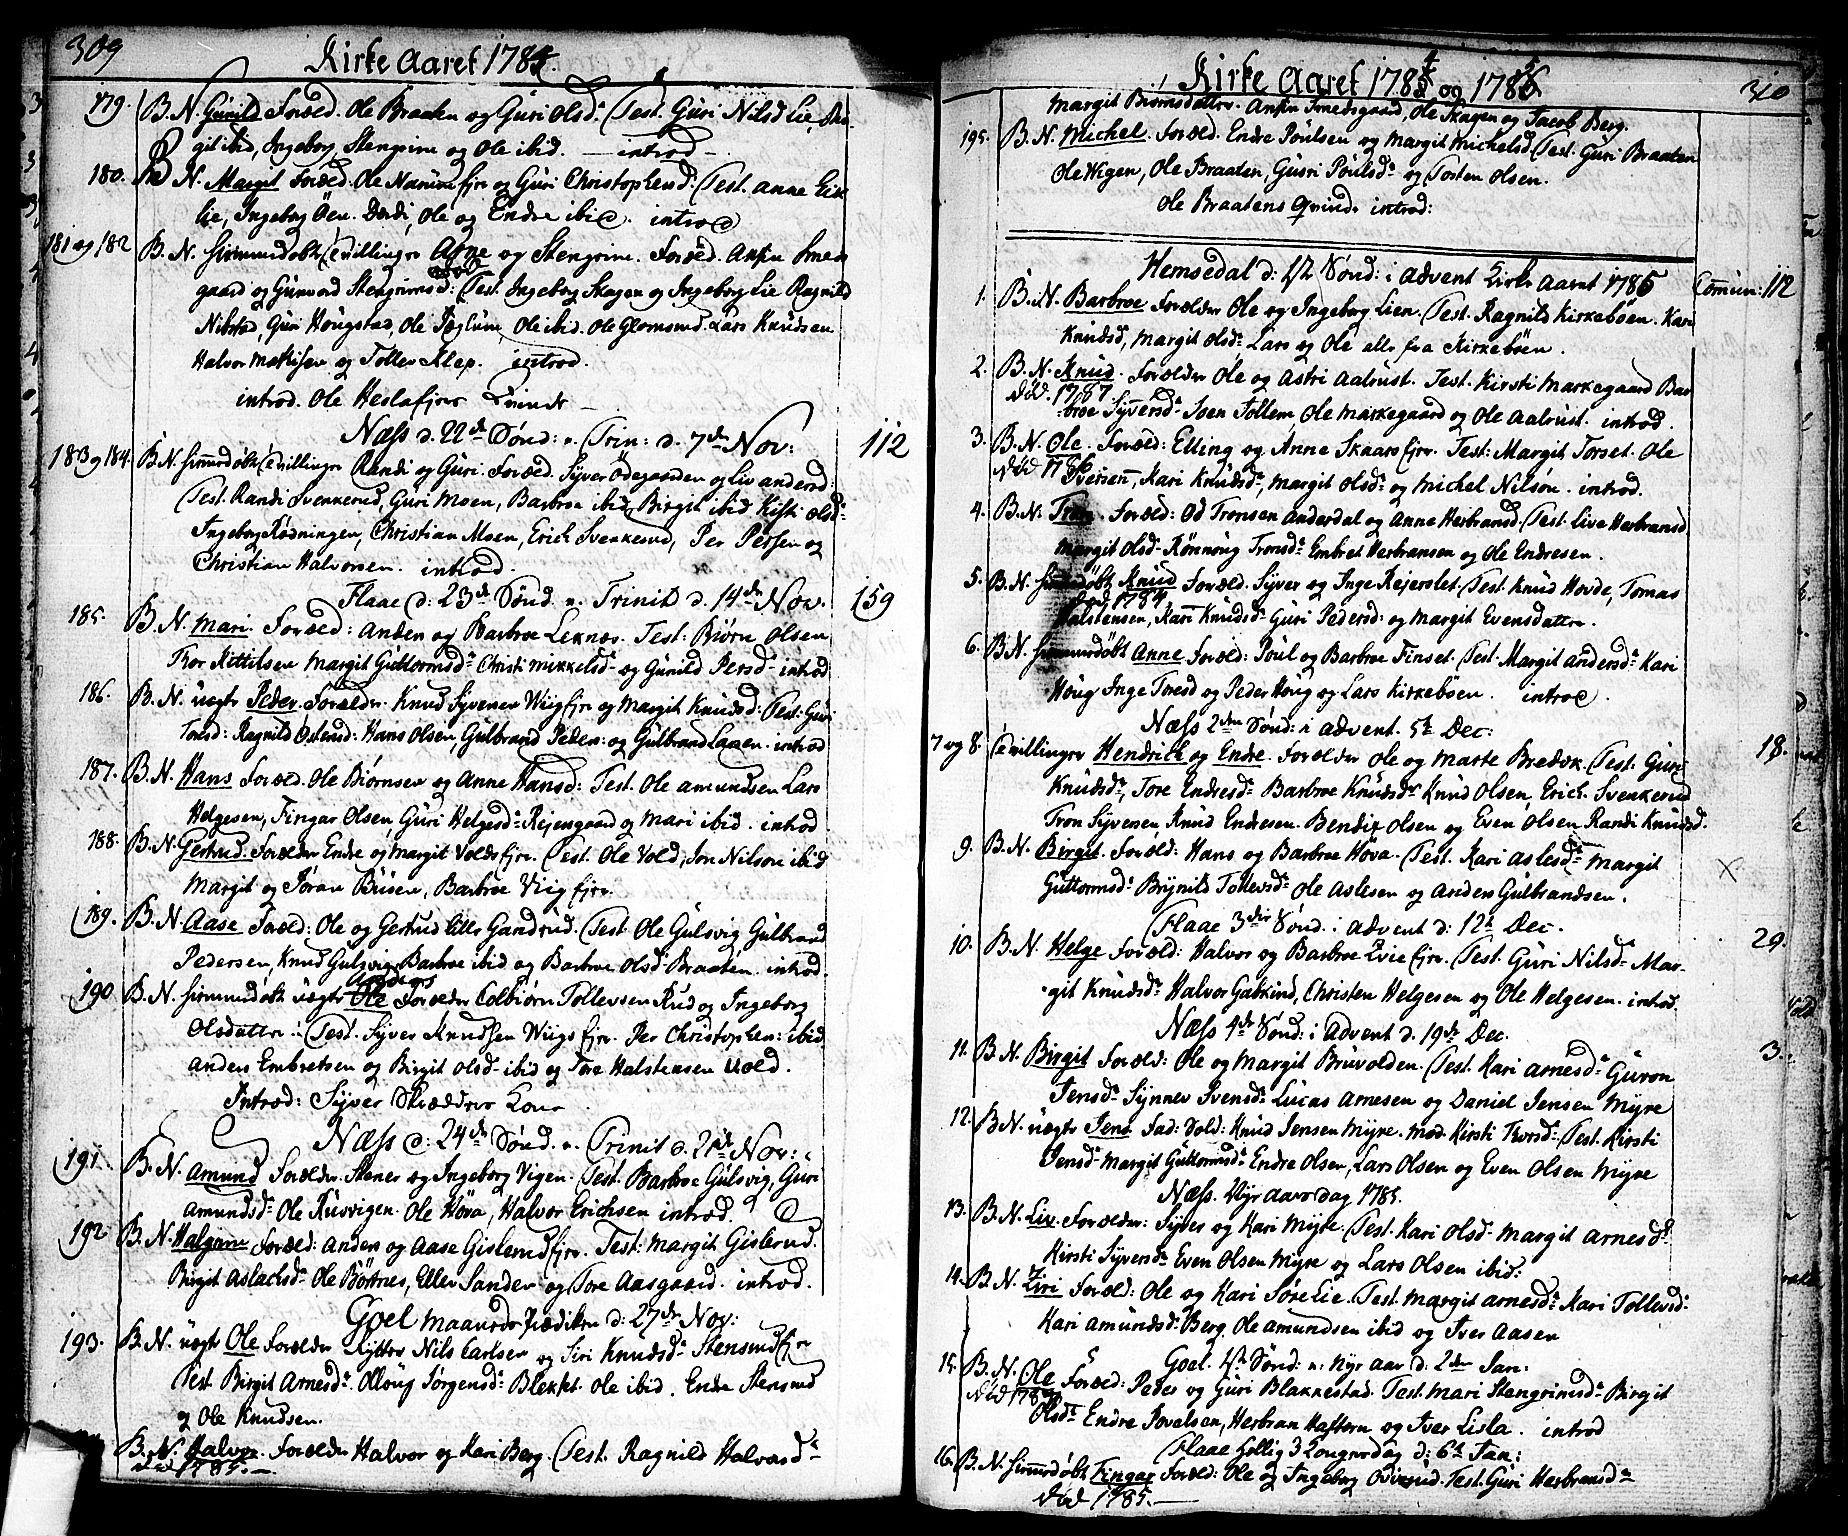 309
Kirke Aaret 1784.
179. B. N. Gunild Foræld. Ole Braaten og Guri Olsd. Test. Guri Nilsd Lie, Bir-
git ibid, Ingeborg, Stengrim og Ole ibid. introd
180. B N. Margit Foræld. Ole og Guri Christophersd: Test. Anne Eik
lie, Ingeborg Öen. Dordi, Ole og Endre ibid. introd
181 og 182 B. N. hiemmedøbt Tvillinger Arne og Stengrim. Foræld. Ansten Smeds
gaard og Gunvord Stengrimsd: Test. Ingeborg Skagen og Ingeborg Lie Ragnild
Nibstad, Guri Hougstad, Ole Ole ibid. Ole Glomsrud. Lars Knudsen
Halvor Mathisen og Tollev Klep. introd.
introd. Ole Heslafjer Qvinde
Næss d. 22de Sönd: e. Trin: d. 7de Nov: 112
183 og 184. B. N. hiemmedøbt Tvillinger Randi og Guri. Foræld. Syver Ödegaarden og Liv Andersd:
Test. Randi Svenkerud, Guri Moen, Barbroe ibid, Birgit ibid Kisti Olsd
Ingeborg Rødningen, Christian Moen, Erich Svenkerud, Per Persen og
Christian Halvorsen. introd.
Flaae d: 23de Sönd e. Trinit d. 14de Nov. 159
185. B. N. Mari. Foræld: Anden og Barbroe Leknæs. Test: Biörn Olsen
Thor Kittilsen Margit Guttormsd Christi Mikkelsd og Gunild Persd introd
186. B. N. uegte Peder. Forælder. Knud Syversen Wiigfjer og Margit Knudsd: Test: Guri
Toresd: Ragnild Ostensd: Hans Olsen, Gulbrand Peders: og Gulbrand Laaen introd
187. B. N. Hans Foræld. Ole Biörnsen og Anne Hansd: Test. Ole Amundsen Lars
Helgesen, Fingar Olsen, Guri Helgesd Rejersgaard og Mari ibid. introd
188. B. N. Gertrud. Forælder Endre og Margit Voldsfjer. Test. Ole Vold, Jon Nilsen ibid
Margit og Jøran Busen, Barbroe Viigfjer.
189. B. N. Aase Foræld. Ole og Gertrud Gandrud. Test. Ole Gulsvig Gulbrand
Pedersen, Knud Gulsvig, Barbroe ibid og Barbroe Olsd Braaten. introd.
190. B. N. hiemmedøbt uegte Ole Forælder Colbiörn Tollevsen Rud og Ingeborg
Olsdatter. Test. Syver Knudsen Wiigsfjer. Per Christophers: ibid
Anders Embretsen og Birgit Olsd ibid og Tore Halstensen Vold.
Introd: Syver Skrædder Kone.
Næss d: 24de Sönd e. Trinit d. 21de Nov:
191. B. N. Amund Forælder. Stener og Ingeborg Vigen. Test. Barbroe Gulsvig, Guri
Amundsd Ole Rusvigen. Ole Höva, Halvor Erichsen introd.
192 B. N. Halgrim Foræld: Anders og Aase Gislerudfjer. Test: Margit Gislerud.
Birgit Aslachsd Ole Börtnes, Ellev Sander og Tore Aasgaard. introd.
Goel Maaneds Prædiken d: 27de Nov:
193. B. N. uegte Ole Forælder Rytter Nils Carlsen og Siri Knudsd Stensrudfjer
Test. Birgit Arnesd Olloug Jørgensd Blekket. Ole ibid. Endre Stensrud
og Ole Knudsen.
B. N. Halvor. Forælder Halvor og Kari Berg. Test. Ragnild Halvorsd
död 1785.
Kirke Aaret 1784 og 1785 310
Margit Biørnsdatter. Ansten Smedsgaard, Ole Skagen og Jacob Berg.
195. B. N. Michel. Foræld. Endre Poulsen og Margit Michelsd. Test. Guri Braaten
Ole Wigen, Ole Braaten, Guri Poulsd og Torsten Olsen.
Ole Braatens Qvinde introd:
Hemsedal d: 1/2 Sönd: i Advent Kirke Aaret 1785 Commun: 112
1. B. N. Barbroe Forælder Ole og Ingeborg Lien. Test. Ragnild Kirkeböen. Kari
Knudsd, Margit Olsd Lars og Ole alle fra Kirkeböen.
2. B. N. Knud. Forælder Ole og Astri Aalrust. Test. Kirsti Markegaard Bar
död. 1787 broe Syversd Joen Tollem, Ole Markegaard og Ole Aalrust. introd.
3. B. N. Ole. Foræld: Elling og Anne Skaarsfjer. Test: Margit Torset. Ole
död 1786 Iversen, Kari Knudsd, Margit Olsd og Michel Nilsøn. introd.
4. B. N. Tron. Foræld: Od Tronsen Anderdal og Anne Herbrandsd. Test. Live Herbransd
Margit Olsd Rönnoug Tronsd Embret Herbransen og Ole Endresen.
5. B. N. hiemmedöbt Knud Foræld. Syver og Inge Rejerslet. Test. Knud Hovde, Tomas
död 1784 Halstensen, Kari Knudsd Guri Pedersd og Margit Evensdatter.
6. B. N. hiemmedöbt Anne Foræld: Poul og Barbroe Finset. Test. Margit Andersd Kari
Houg Inge Toresd og Peder Houg og Lars Kirkeböen. introd
Næss 2den Sönd: i Advent. 5te Dec:
7 og 8. Tvillinger Hendrich og Endre. Forælder Ole og Marte Test. Guri 18.
Knudsd, Tore Endresd Barbroe Knudsd Knud Olsen Erich Svenkerud
Tron Syversen Knud Endresen. Bendix Olsen og Even Olsen Randi Knudsd.
9. B. N. Birgit. Foræld: Hans og Barbroe Höva. Test. Kari Aslesd Margit
Guttormsd Brynild Tollevsd Ole Aslesen og Anders Gulbrandsen.
Flaae 3die Sönd. i Advent d: 12te Dec.
10. B. N. Helge Foræld: Halvor og Barbroe Eviefjer. Test. Guri Nilsd Mar- 29.
git Knudsd Halvor Gabrud, Christen Helgesen og Ole Helgesen. introd
Næss 4de Sönd: i Advent d. 19de Dec.
11. B. N. Birgit Foræld: Ole og Margit Bruvolden. Test. Kari Arnesd Guron 3.
Jensd Synnev Svensd Lucas Arnesen og Daniel Jensen Myre
12. B. N. uegte Jens Fad: Sold: Knud Jensen Myre. Mod. Kirsti Thorsd. Test. Kirsti
Jensd Margit Guttormsd Endre Olsen, Lars Olsen og Even Olsen Myre
Næss. Nyr aars dag 1785.
13. B. N. Liv. Forælder: Syver og Kari Myre. Test. Kari Olsd Margit Arnesd
Kirsti Syversd Even Olsen Myre og Lars Olsen ibid:
14. B. N. Siri Foræld: Ole og Kari Søre Lie. Test. Margit Arnesd Kari Tollevsd
Kari Amundsd Berg. Ole Amundsen ibid og Iver Aasen
Goel. Sönd: e: Nyr aar d: 2den Jan:
15. B. N. Ole Foræld: Peder og Guri Blakkestad. Test. Mari Stengrimsd Birgit
Olsd Endre Povelsen, Herbran Haftorn og Iver Lisla. introd
Flaae Hellig 3 Kongersdag d: 6te Jan:
16. B. N. hiemmedöbt Fingar Foræld: Ole og Ingeborg Test. Guri Herbransd
död 1785.